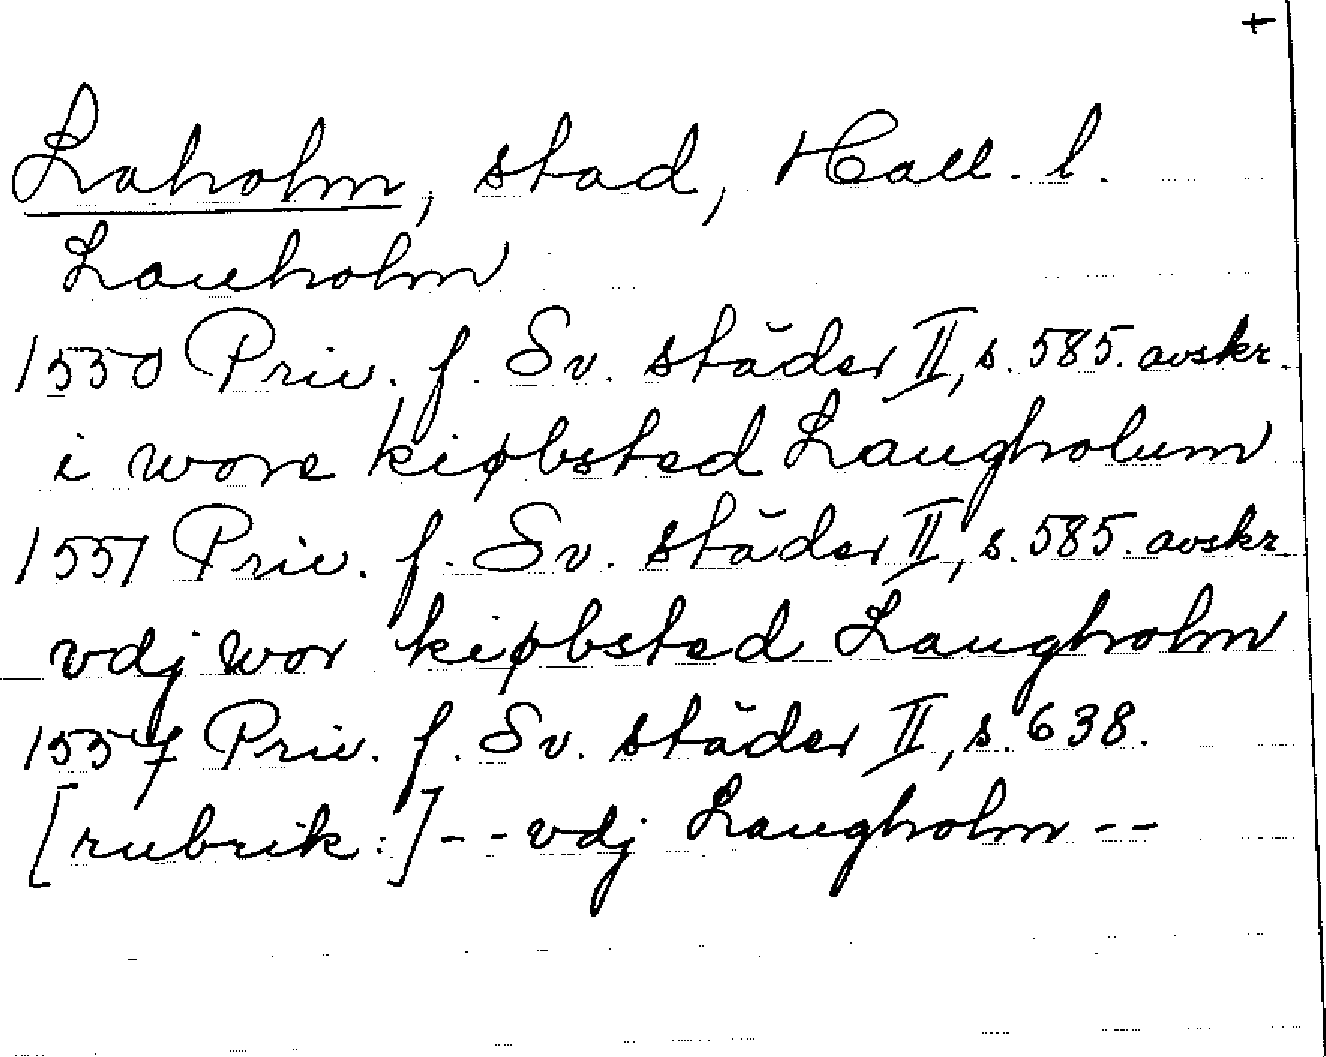 +
Laholm, stad, Hall. l.
Lauholm
1550 Priv. f. Sv. städer II, s. 585. avskr.
i wore kiøbsted Laugholum
1551 Priv. f. Sv. städer II, s. 585. avskr
vdj wor kiøbsted Laugholm
1557 Priv. f. Sv. städer II, s. 638.
[rubrik:] - - vdj Laugholm - -